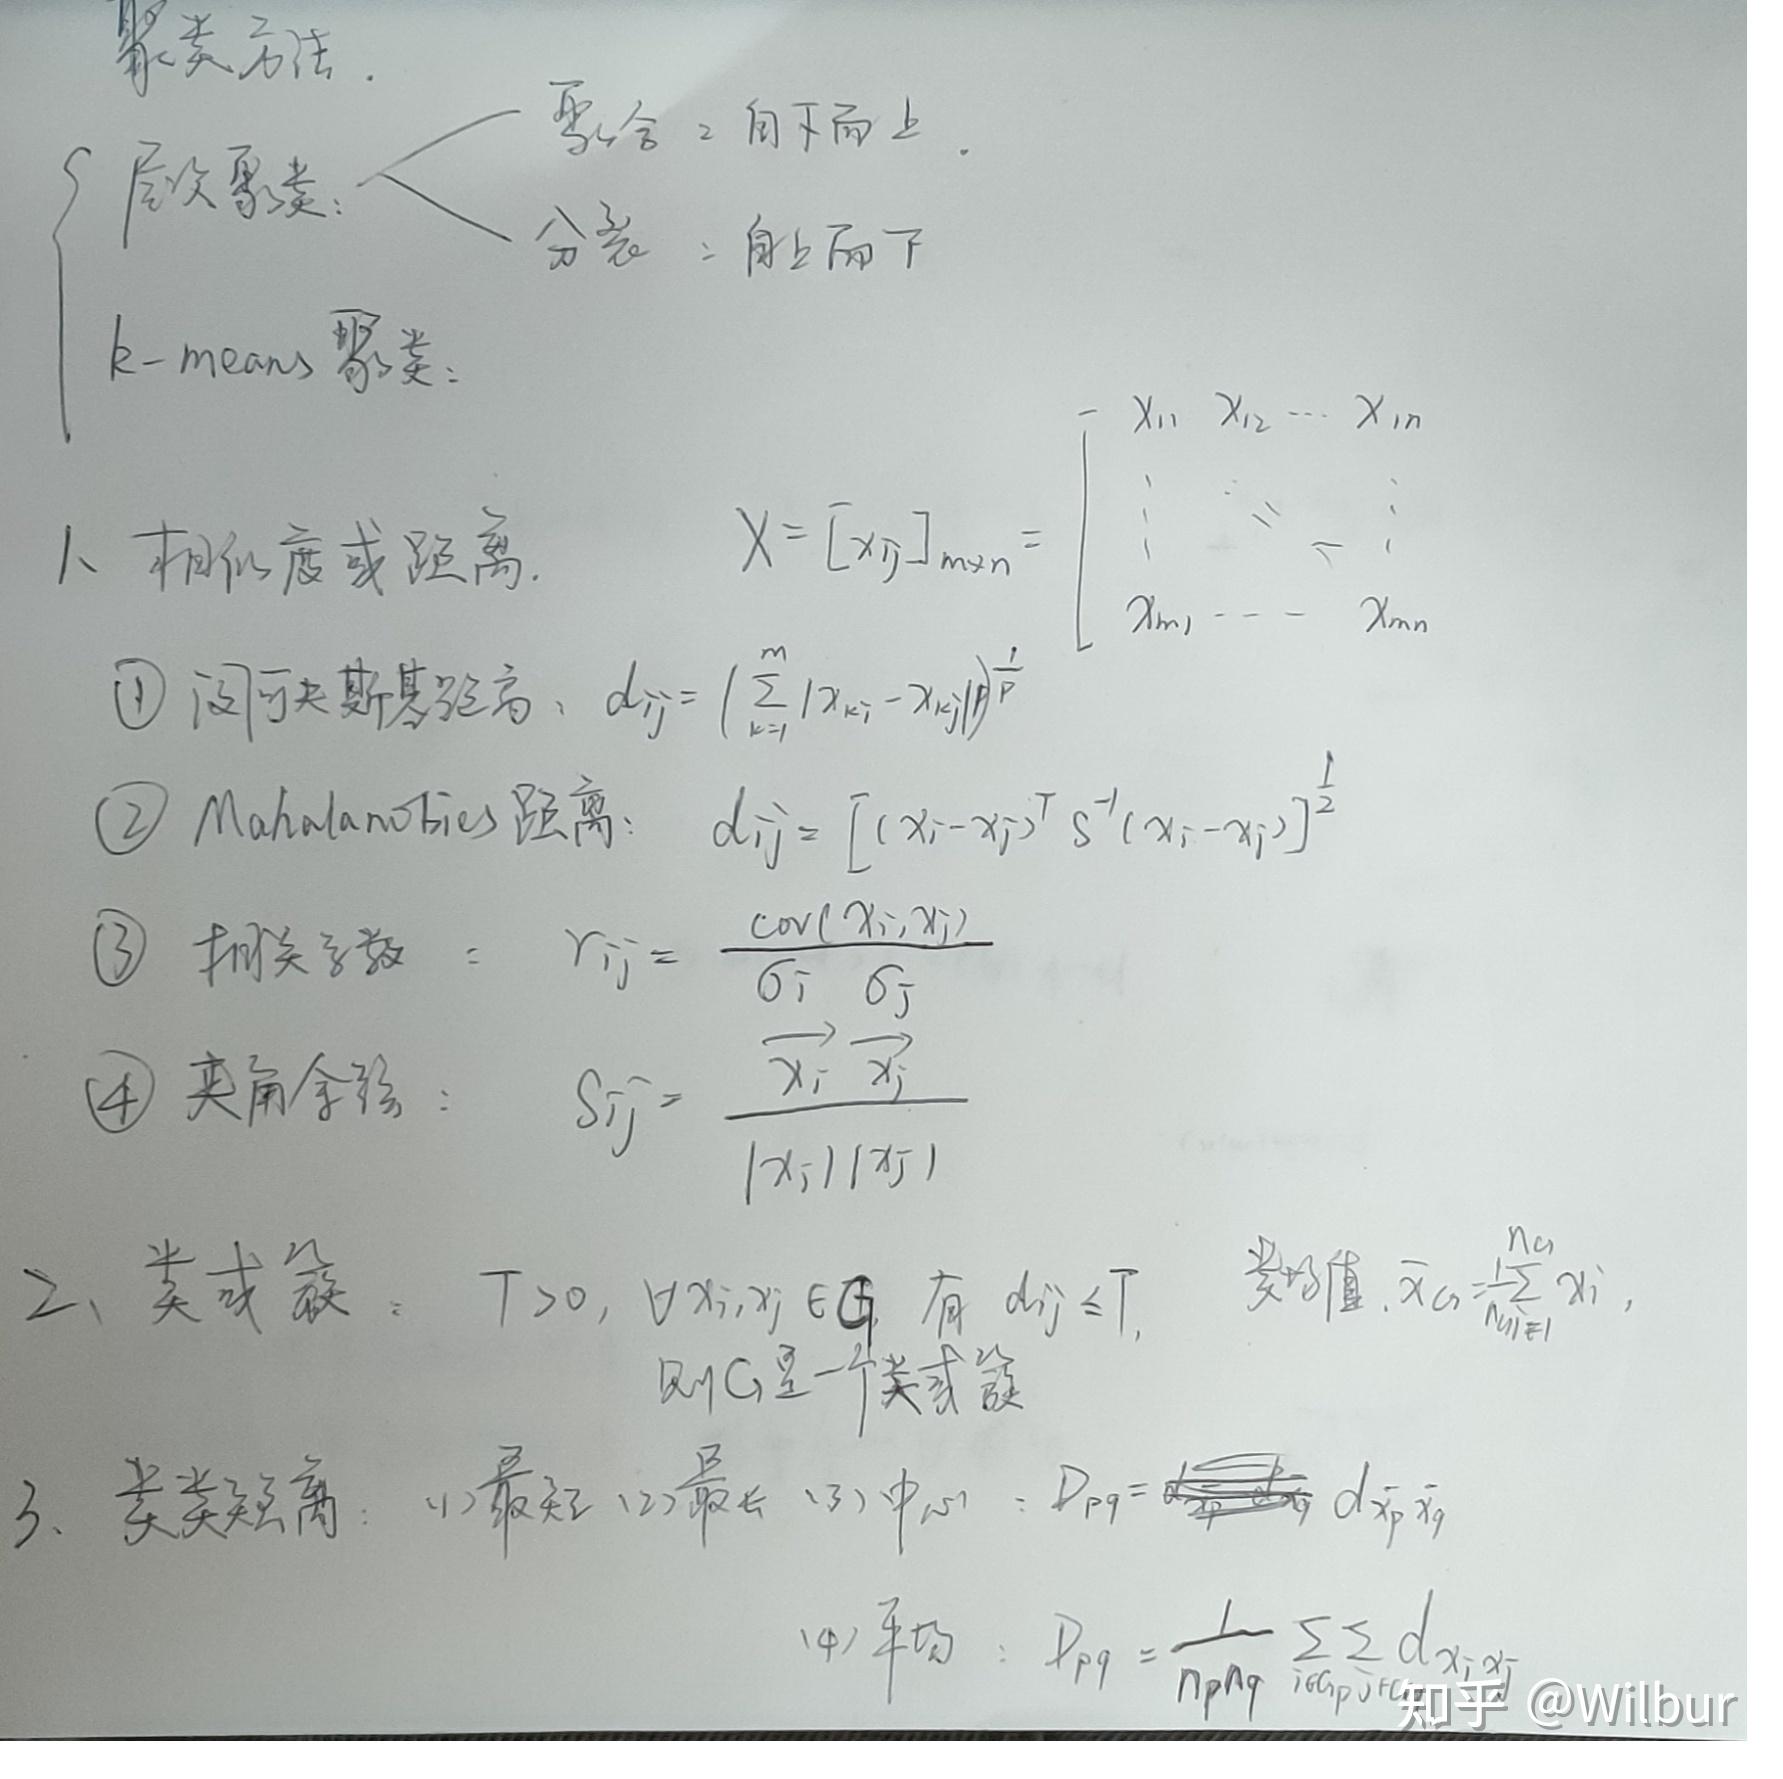 聚类方法.
层次聚类: 聚合: 自下而上.
分裂: 自上而下
k-means聚类:
1、相似度或距离. X = [xij]m×n = [x11 x12 ... x1n
⋮ ⋱ ⋮
xm1 --- xmn
① 闵可夫斯基距离: dij = (∑_{k=1}^{m} |xki - xkj|^p)^{1/p}
② Mahalanobies距离: dij = [(xi - xj)^T S^{-1} (xi - xj)]^{1/2}
③ 相关系数: rij = cov(xi, xj) / σi σj
④ 夹角余弦: Sij = →xi →xj / |xi| |xj|
2、类或簇: T>0, ∀xi,xj∈G, 有 dij ≤ T, 类均值. x̄G = 1/nG ∑_{i=1}^{nG} xi,
则G是一个类或簇
3、类类距离: (1)最短 (2)最长 (3)中心: Dpq = d x̄p x̄q
(4)平均: Dpq = 1/(np nq) ∑_{i∈Gp} ∑ d xi xj
知乎 @Wilbur